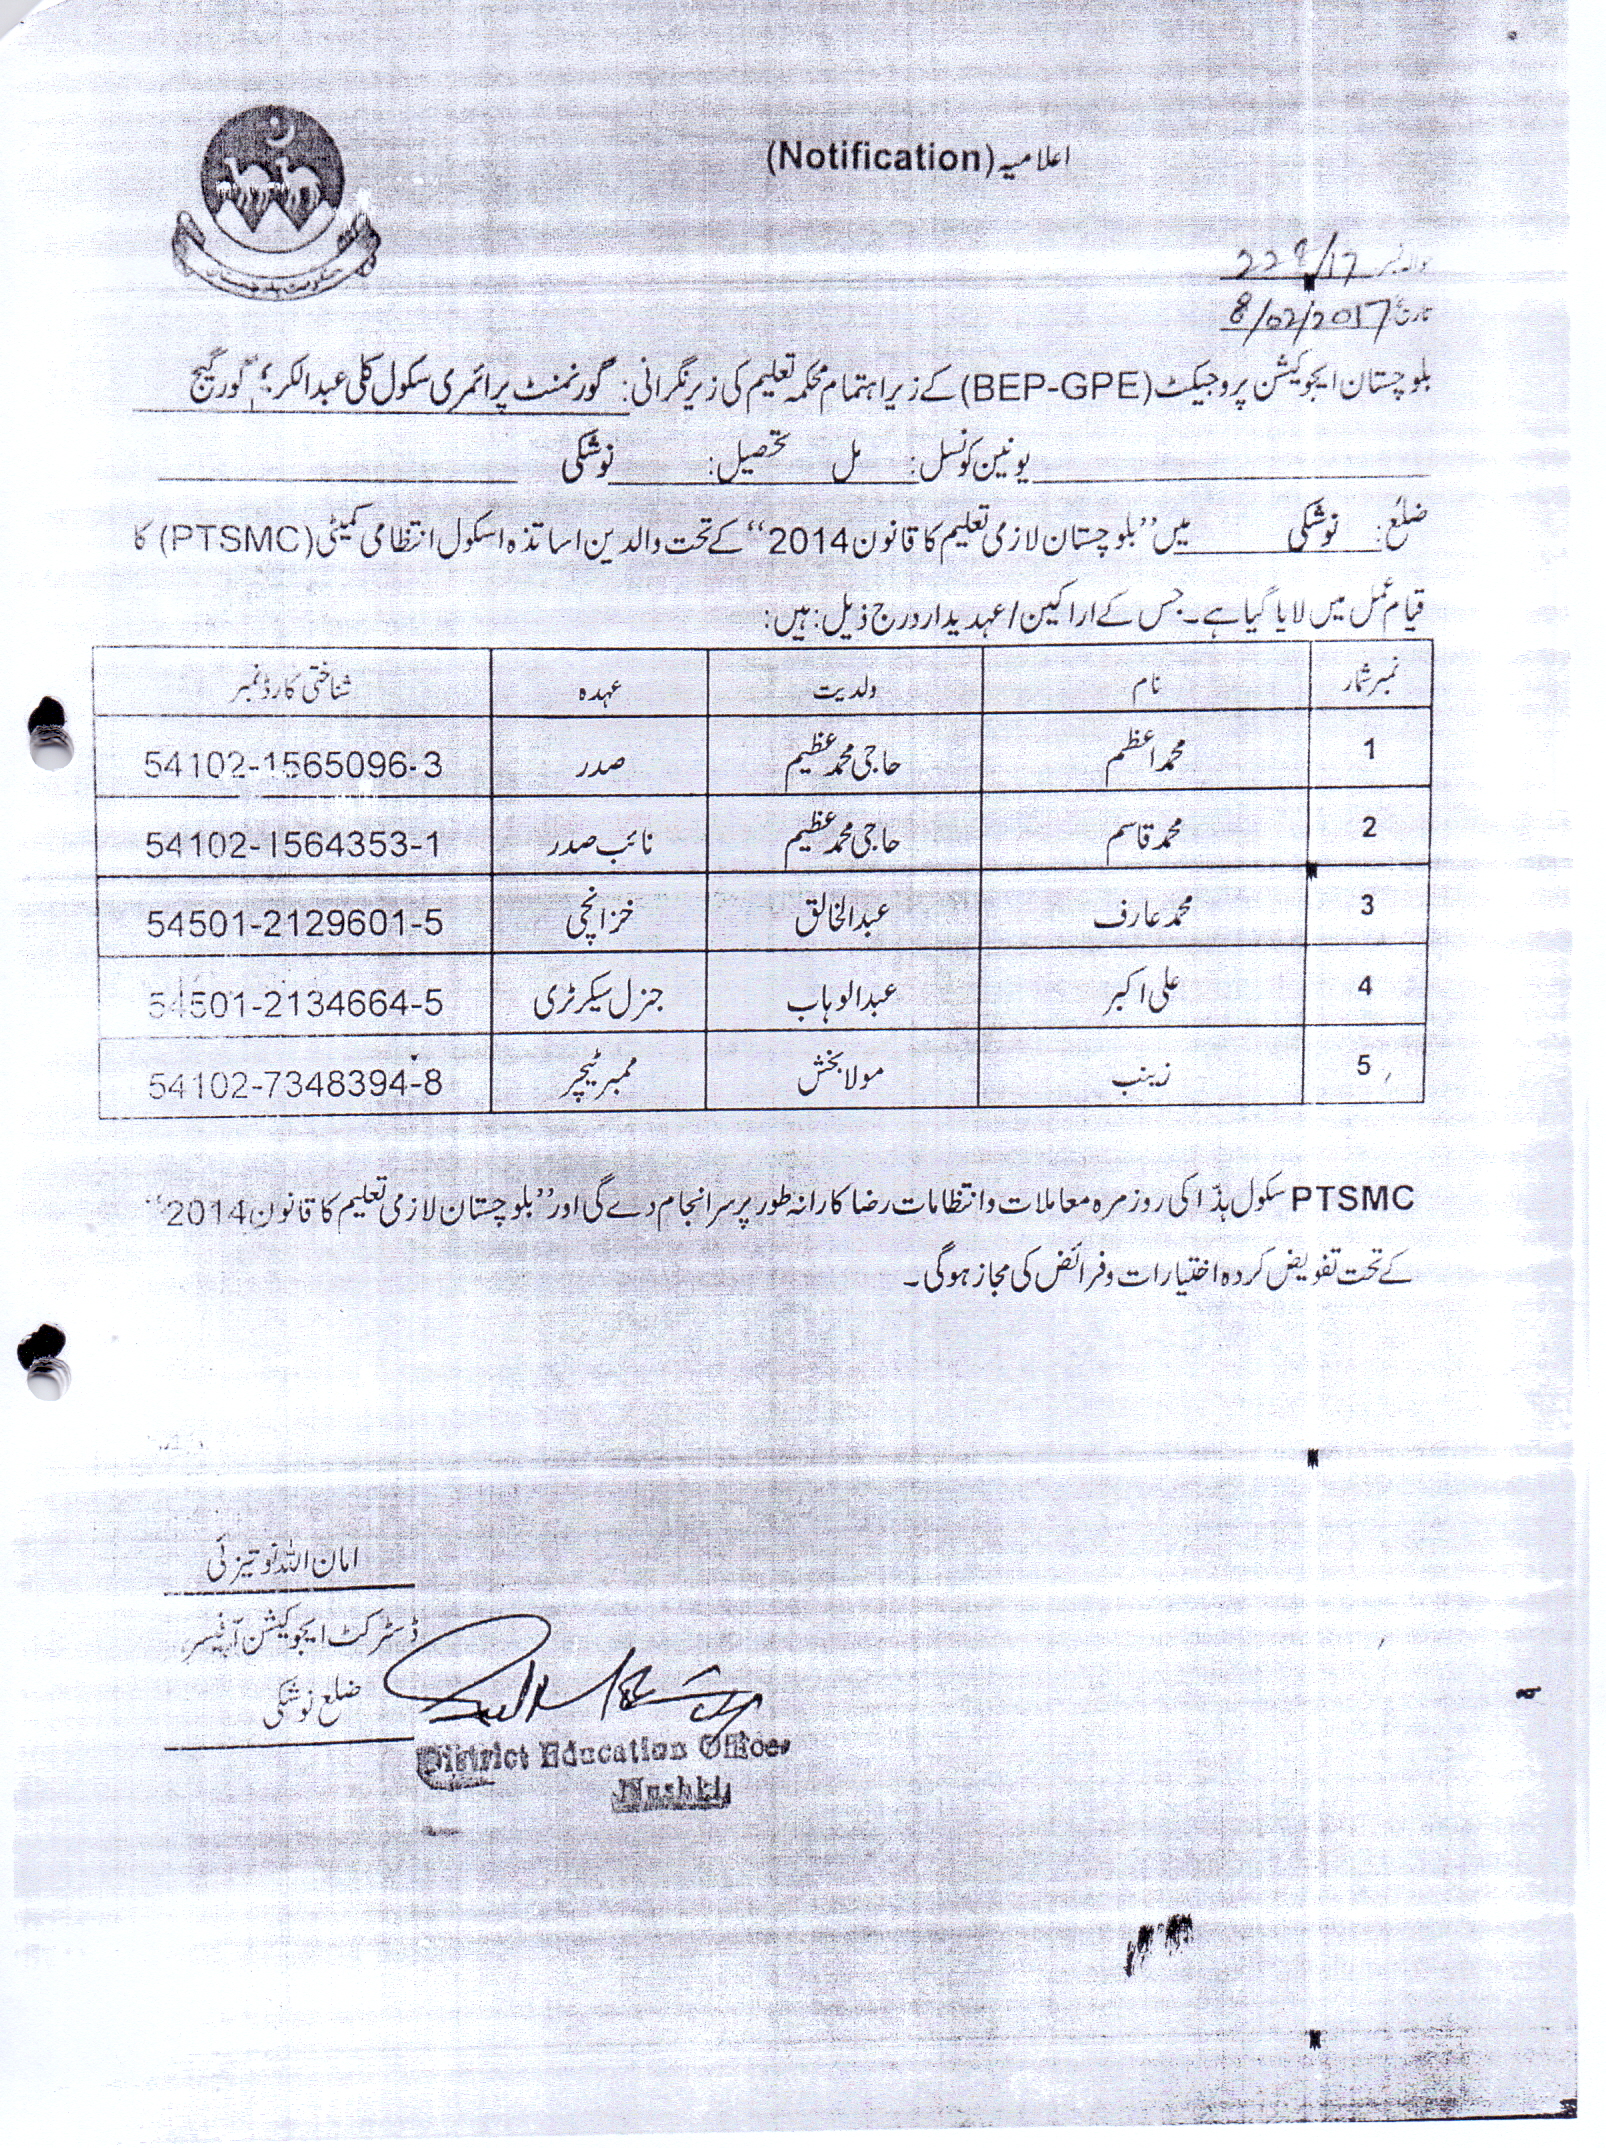 حکومت بلوچستان
اعلامیہ (Notification)
حوالہ نمبر 228/17
تاریخ 8/02/2017
بلوچستان ایجوکیشن پروجیکٹ (BEP-GPE) کے زیر اہتمام محکمہ تعلیم کی زیر نگرانی: گورنمنٹ پرائمری سکول کلی عبدالکریم گورگیج
یونین کونسل: مل تحصیل: نوشکی
ضلع: نوشکی میں ”بلوچستان لازمی تعلیم کا قانون 2014“ کے تحت والدین اساتذہ اسکول انتظامی کمیٹی (PTSMC) کا
قیام عمل میں لایا گیا ہے۔ جس کے اراکین/عہدیدار درج ذیل: ہیں:
نمبر شمار نام ولدیت عہدہ شناختی کارڈ نمبر
1 محمد اعظم حاجی محمد عظیم صدر 54102-1565096-3
2 محمد قاسم حاجی محمد عظیم نائب صدر 54102-1564353-1
3 محمد عارف عبدالخالق خزانچی 54501-2129601-5
4 علی اکبر عبدالوہاب جنرل سیکرٹری 54501-2134664-5
5 زینب مولا بخش ممبر ٹیچر 54102-7348394-8
PTSMC سکول ہذا کی روزمرہ معاملات و انتظامات رضا کارانہ طور پر سرانجام دے گی اور ”بلوچستان لازمی تعلیم کا قانون 2014“
کے تحت تفویض کردہ اختیارات و فرائض کی مجاز ہوگی۔
امان اللہ نوتیزئی
ڈسٹرکٹ ایجوکیشن آفیسر
ضلع نوشکی
District Education Officer
Nushki